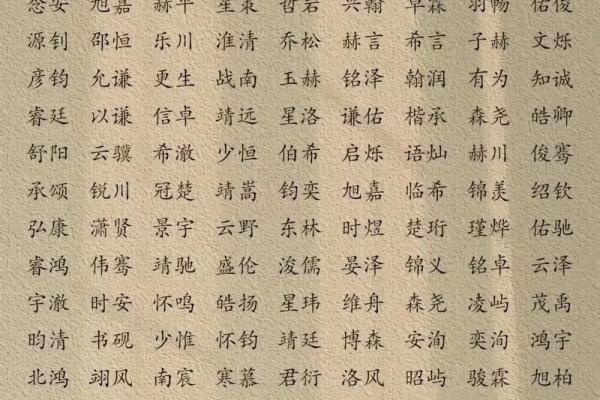 源钊 邵恒 乐川 淮清 乔松 赫言 希言 子赫 文烁
彦钧 允谦 更生 战南 玉赫 铭泽 翰润 有为 知诚
睿廷 以谦 信卓 靖远 星洛 谦佑 楷承 森尧 皓卿
舒阳 云骥 希澈 少恒 伯希 启烁 语灿 赫川 俊骞
承颂 锐川 冠楚 靖嵩 钧奕 旭嘉 临希 锦羡 绍钦
弘康 潇贤 景宇 云野 东林 时煜 楚珩 瑾烨 佑驰
睿鸿 伟骞 靖驰 盛伦 浚儒 晏泽 锦义 铭卓 云泽
宇澈 时安 怀鸣 皓扬 星玮 维舟 森尧 凌屿 茂禹
昀清 书砚 少惟 怀钧 靖廷 博森 安洵 奕洵 鸿宇
北鸿 翊风 南宸 寒慕 君衍 洛风 昭屿 骏霖 旭柏